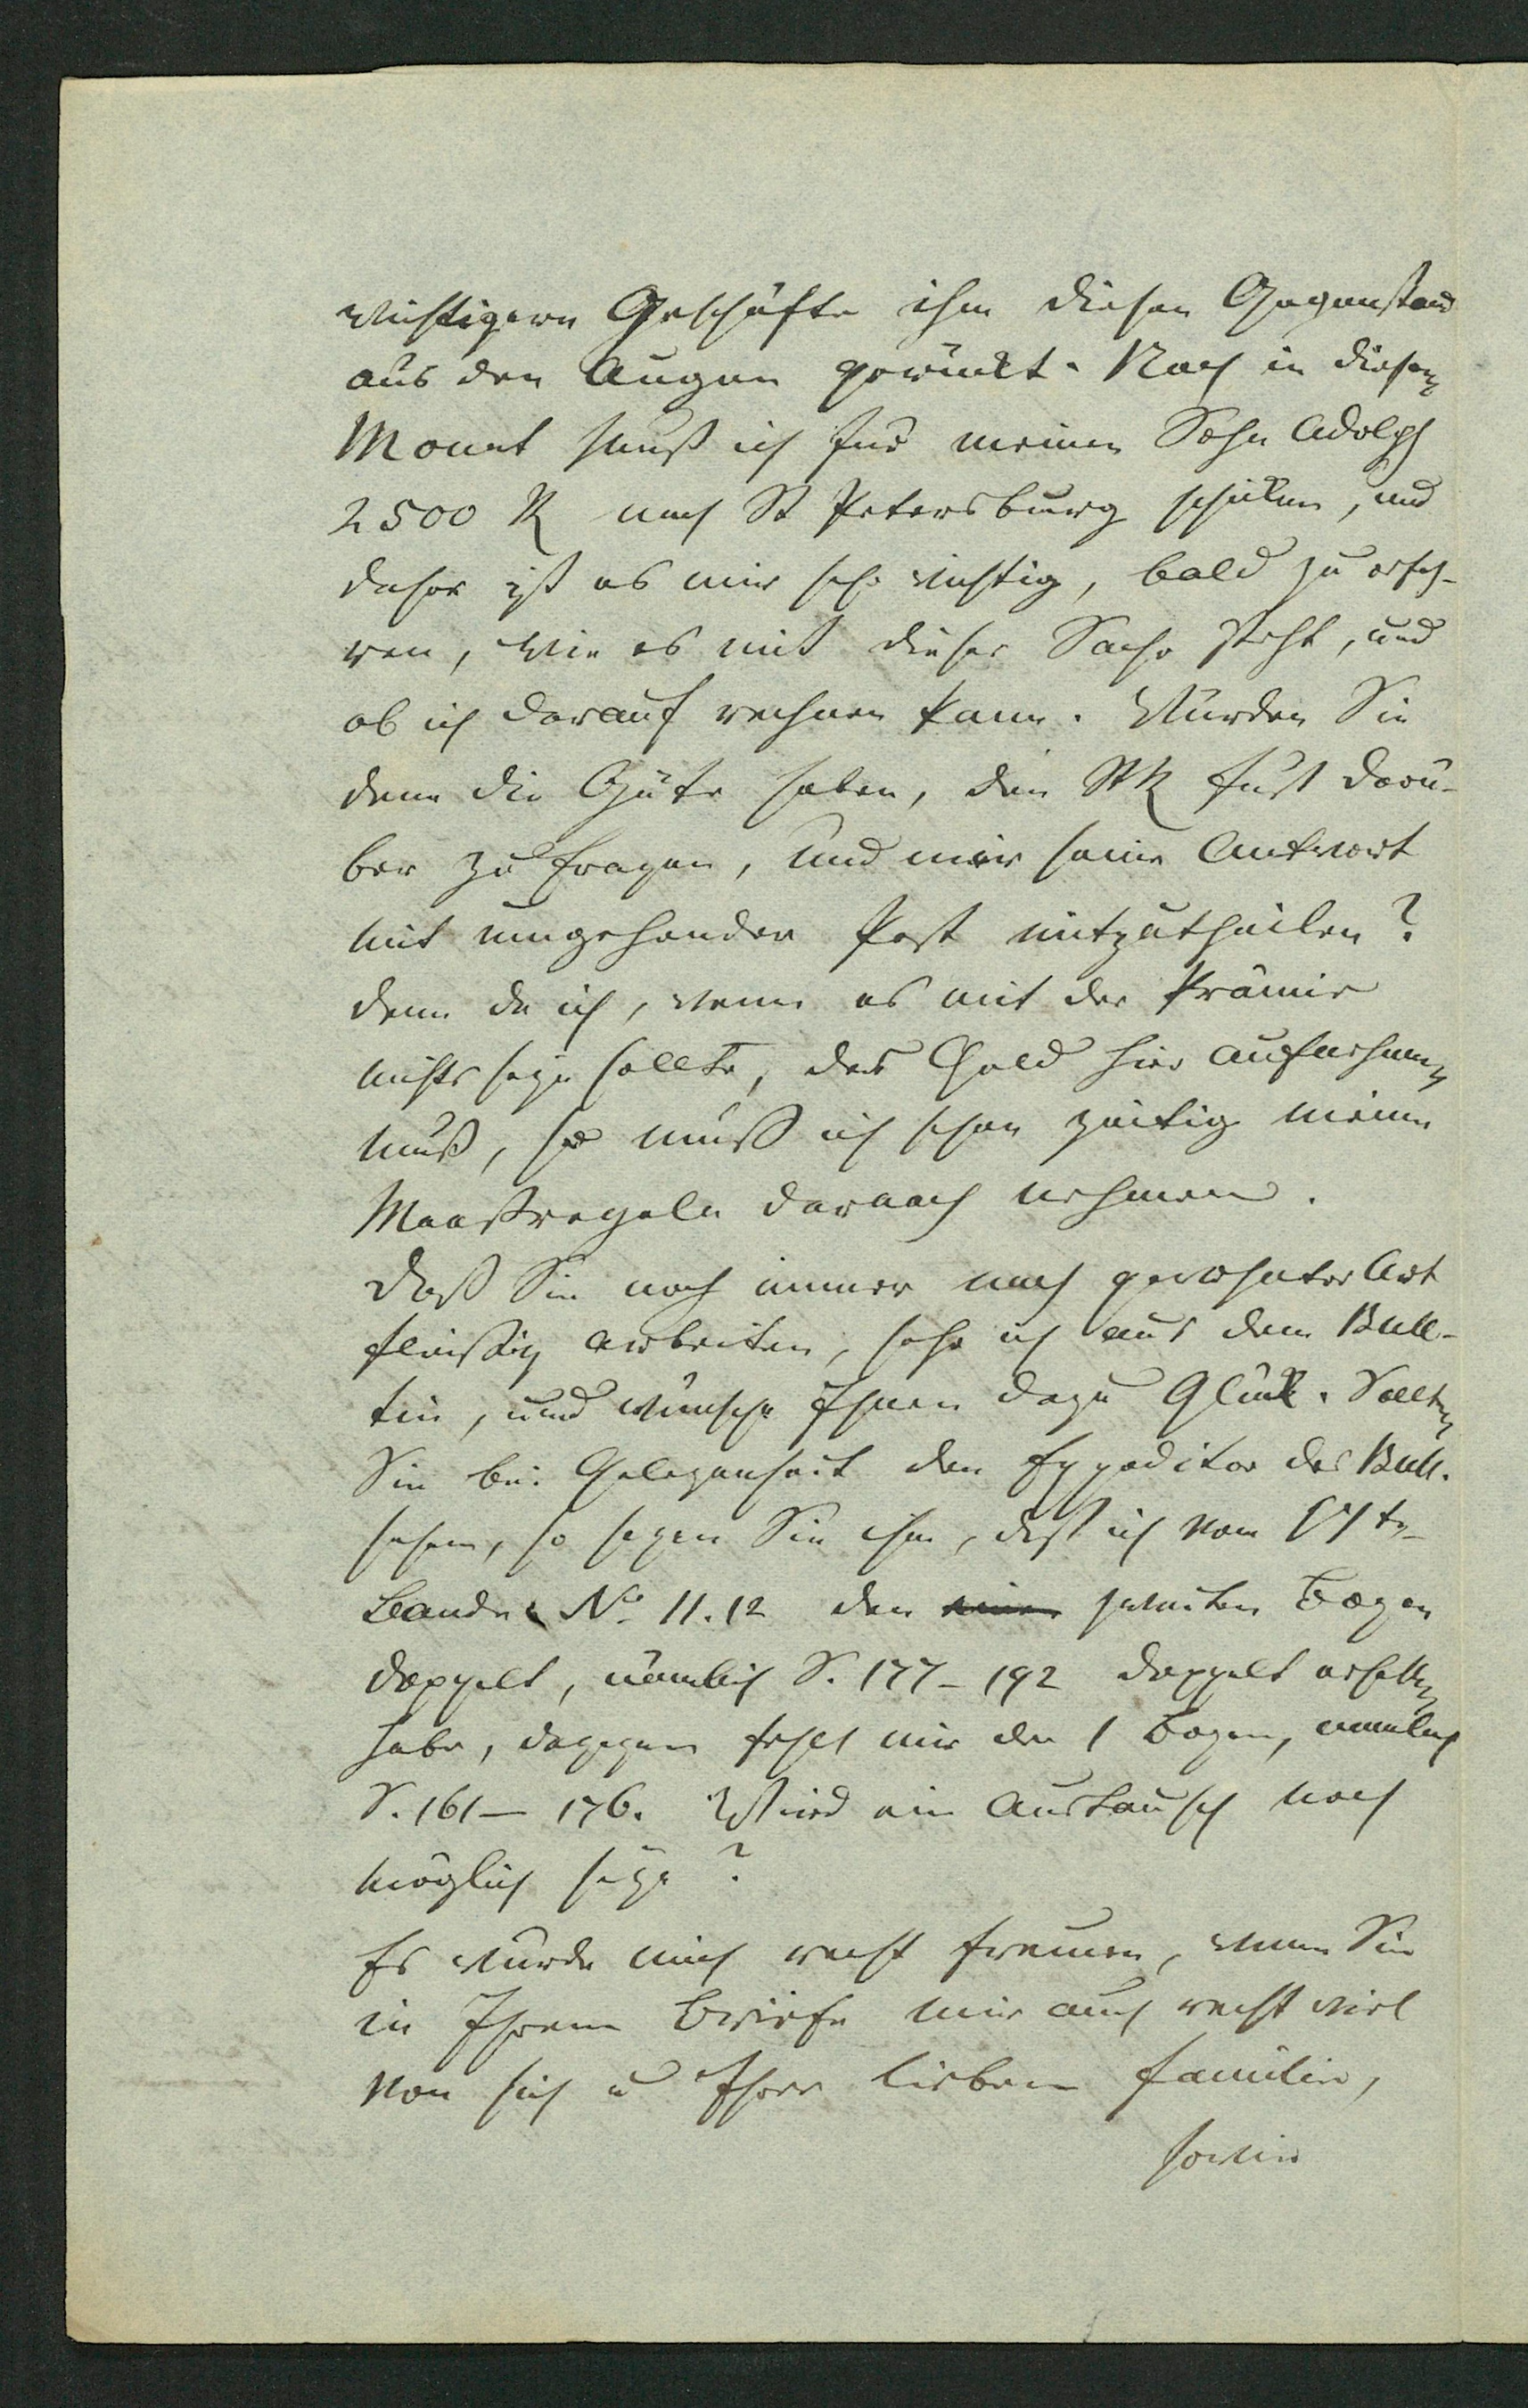 wichtigern Geschäfte ihm diesen Gegenstand
aus den Augen gerückt. Noch in diesem
Monat muß ich für meinen Sohn Adolph
2500 R nach St Petersburg schicken, und
daher ist es mir sehr wichtig, bald zu erfah-
ren, wie es mit dieser Sache steht, und
ob ich darauf rechnen kann. Würden Sie
denn die Güte haben, den StR Fuß darü-
ber zu fragen, und mir seine Antwort
mit umgehender Post mitzutheilen?
denn da ich, wenn es mit der Prämie
nichts seyn sollte, das Geld hier aufnehmen
muß, so muß ich schon zeitig meine
Maaßregeln darnach nehmen.
Daß Sie noch immer nach gewohnter Art
fleißig arbeiten, sehe ich aus dem Bulle-
tin, und wünsche Ihnen dazu Glück. Sollten
Sie bei Gelegenheit den Expeditor des Bull.
sehen, so sagen Sie ihm, daß ich vom
Bande No 11.12 den zweiten Bogen
doppelt, nämlich S. 177-192 doppelt erhalten
habe, dagegen fehlt mir der 1 Bogen, nämlich
S. 161-176. Wird ein Austausch noch
möglich seyn?
Es würde mich recht freuen, wenn Sie
in Ihrem Briefe mir auch recht viel
von sich u Ihrer lieben Familie,
sowie